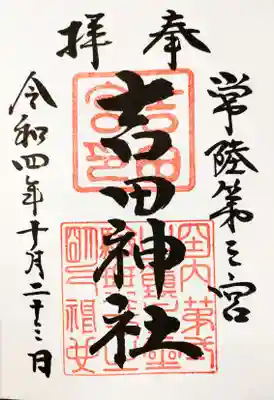 奉拝
常陸第三宮
吉田神社
令和四年十月二十三日